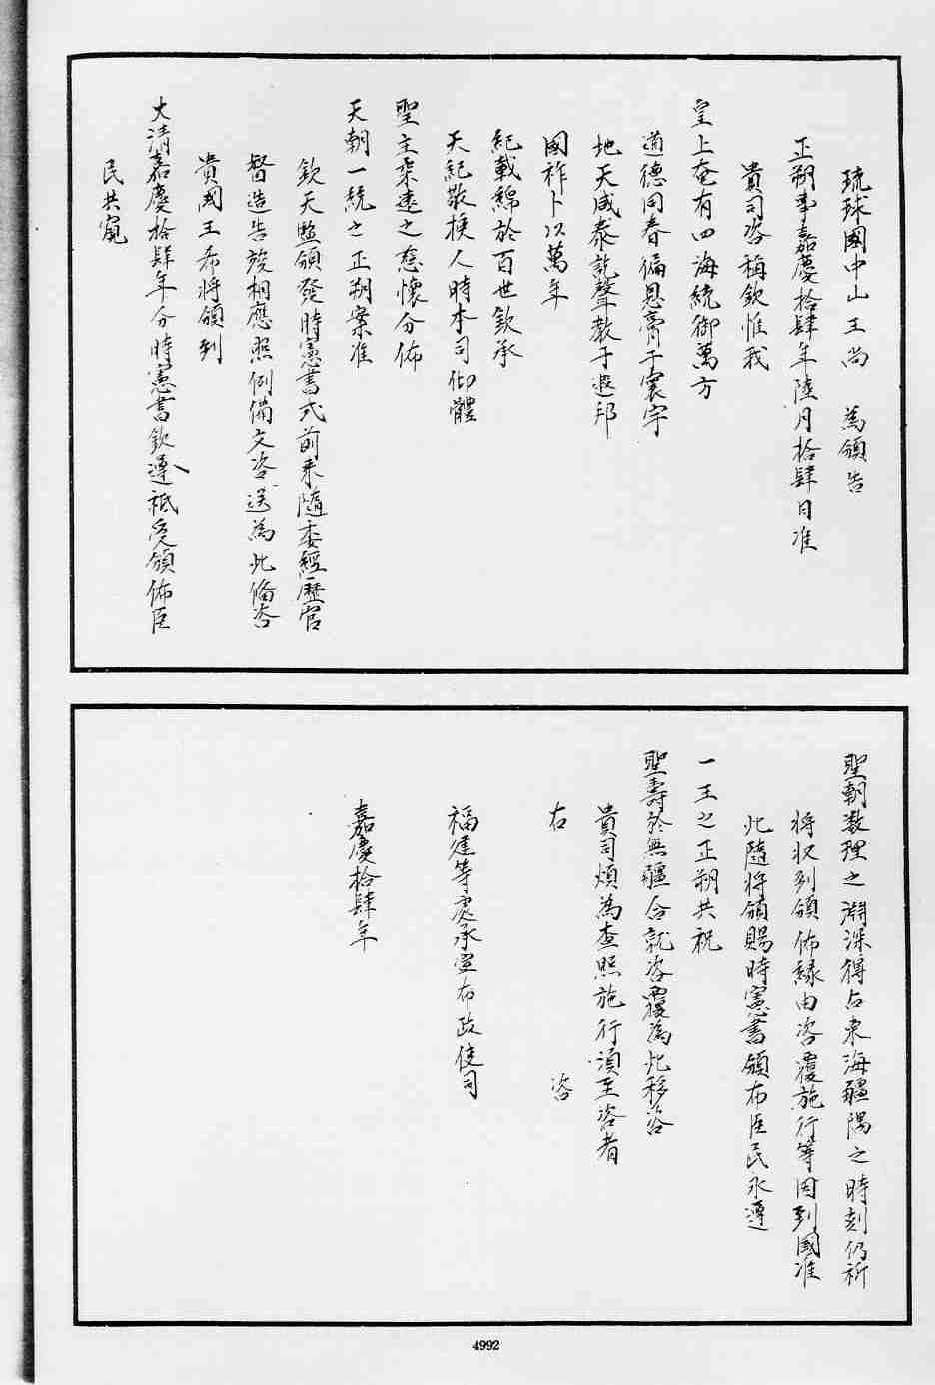 琉球國中山王尚　為頒告
正朔事嘉慶拾肆年陸月拾肆日准
貴司咨稱欽惟我
皇上奄有四海統御萬方
道德同春徧恩膏于寰宇
地天咸泰訖聲教于遐邦
國祚卜以萬年
紀載綿於百世欽承
天紀敬授人時本司仰體
聖主柔遠之慈懷分佈
天朝一統之正朔案准
欽天監頒發時憲書式前來隨委經歷官
督造告竣相應照例備文咨送為此備咨
貴國王希將頒到
大清嘉慶拾肆年分時憲書欽遵祗受頒佈臣
民共窺
聖朝數理之淵深得占東海疆隅之時刻仍祈
將收到頒佈緣由咨覆施行等因到國准
此隨將頒賜時憲書頒布臣民永遵
一王之正朔共祝
聖壽於無疆合就咨覆為此移咨
貴司煩為查照施行須至咨者
右　咨
福建等處承宣布政使司
嘉慶拾肆年
4992